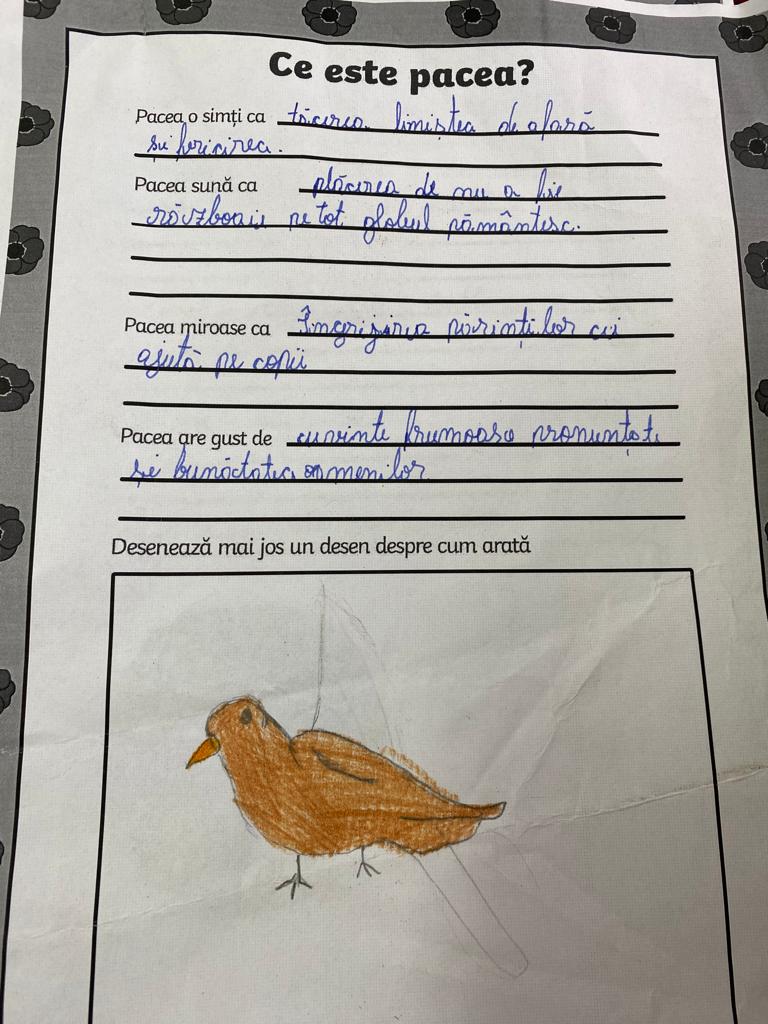 Ce este pacea?
Pacea o simți ca tăcerea liniștea de afară
și fericirea.
Pacea sună ca plăcerea de nu a fie
războaie pe tot globul pământesc.
Pacea miroase ca Îngrijirea părinților cei
ajută pe copii
Pacea are gust de cuvinte frumoase pronunțate
și bunătatea oamenilor
Desenează mai jos un desen despre cum arată